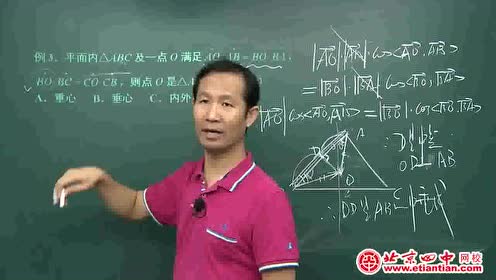 例3. 平面内△ABC及一点O满足AO·AB=BO·BA,
BO·BC=CO·CB, 则点O是△A
A. 重心 B. 垂心 C. 内
|AO|·|AB|·cos<AO,AB>
=|BO|·|BA|·cos<BO,BA>
|AO|cos<AO,AB>=|BO|·cos<BO,BA>
A
D
O
C
OD⊥AB
∴OD是AB
北京四中网校
www.etiantian.com